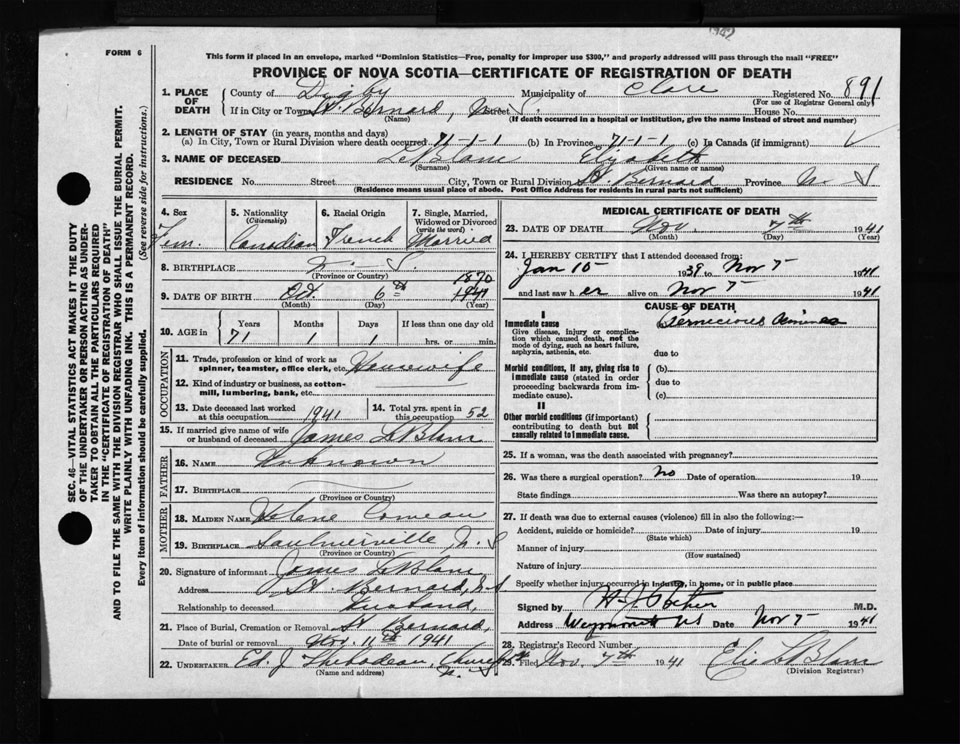 1942
FORM 6
This form if placed in an envelope, marked "Dominion Statistics—Free, penalty for improper use $300," and properly addressed will pass through the mail "FREE"
PROVINCE OF NOVA SCOTIA—CERTIFICATE OF REGISTRATION OF DEATH
SEC. 46—VITAL STATISTICS ACT MAKES IT THE DUTY
OF THE UNDERTAKER OR PERSON ACTING AS UNDER-
TAKER TO OBTAIN ALL THE PARTICULARS REQUIRED
IN THE "CERTIFICATE OF REGISTRATION OF DEATH"
AND TO FILE THE SAME WITH THE DIVISION REGISTRAR WHO SHALL ISSUE THE BURIAL PERMIT.
WRITE PLAINLY WITH UNFADING INK. THIS IS A PERMANENT RECORD.
Every item of information should be carefully supplied. (See reverse side for instructions.)
1. PLACE OF DEATH
County of Digby Municipality of Clare Registered No. 891
(For use of Registrar General only)
If in City or Town St. Bernard, N. S. Street House No.
(Name) (If death occurred in a hospital or institution, give the name instead of street and number)
2. LENGTH OF STAY (in years, months and days)
(a) In City, Town or Rural Division where death occurred 71-1-1 (b) In Province 71-1-1 (c) In Canada (if immigrant)
3. NAME OF DECEASED LeBlanc Elizabeth
(Surname) (Given name or names)
RESIDENCE No. Street City, Town or Rural Division St. Bernard Province N. S
(Residence means usual place of abode. Post Office Address for residents in rural parts not sufficient)
4. Sex Fem.
5. Nationality (Citizenship) Canadian
6. Racial Origin French
7. Single, Married, Widowed or Divorced (write the word) Married
8. BIRTHPLACE N. S.
(Province or Country)
1870
9. DATE OF BIRTH Oct. 6th 1941
(Month) (Day) (Year)
10. AGE in Years 71 Months 1 Days 1 If less than one day old hrs. or min.
OCCUPATION
11. Trade, profession or kind of work as spinner, teamster, office clerk, etc. Housewife
12. Kind of industry or business, as cotton-mill, lumbering, bank, etc.
13. Date deceased last worked at this occupation 1941
14. Total yrs. spent in this occupation 52
15. If married give name of wife or husband of deceased James LeBlanc
FATHER
16. NAME Unknown
17. BIRTHPLACE
(Province or Country)
MOTHER
18. MAIDEN NAME Helene Comeau
19. BIRTHPLACE Saulnierville, N. S
(Province or Country)
20. Signature of informant James LeBlanc
Address St. Bernard, N. S
Relationship to deceased Husband,
21. Place of Burial, Cremation or Removal St. Bernard,
Date of burial or removal Nov. 11th 1941
22. UNDERTAKER Ed. J. Thibodeau, N. S
(Name and address)
MEDICAL CERTIFICATE OF DEATH
23. DATE OF DEATH Nov. 7th 1941
(Month) (Day) (Year)
24. I HEREBY CERTIFY that I attended deceased from:
Jan 10 1939 to Nov 7 1941
and last saw her alive on Nov 7 1941
CAUSE OF DEATH
I
Immediate cause Pernicious
Give disease, injury or complication which caused death, not the mode of dying, such as heart failure, asphyxia, asthenia, etc.
due to
Morbid conditions, if any, giving rise to immediate cause (stated in order proceeding backwards from immediate cause).
(b)
due to
(c)
II
Other morbid conditions (if important) contributing to death but not causally related to immediate cause.
25. If a woman, was the death associated with pregnancy?
26. Was there a surgical operation? No Date of operation 19
State findings Was there an autopsy?
27. If death was due to external causes (violence) fill in also the following:—
Accident, suicide or homicide? Date of injury 19
(State which)
Manner of injury
(How sustained)
Nature of injury
Specify whether injury occurred in industry, in home, or in public place
Signed by M.D.
Address Weymouth NS Date Nov 7 1941
28. Registrar's Record Number
29. Filed Nov. 7th 1941 Elie LeBlanc
(Division Registrar)